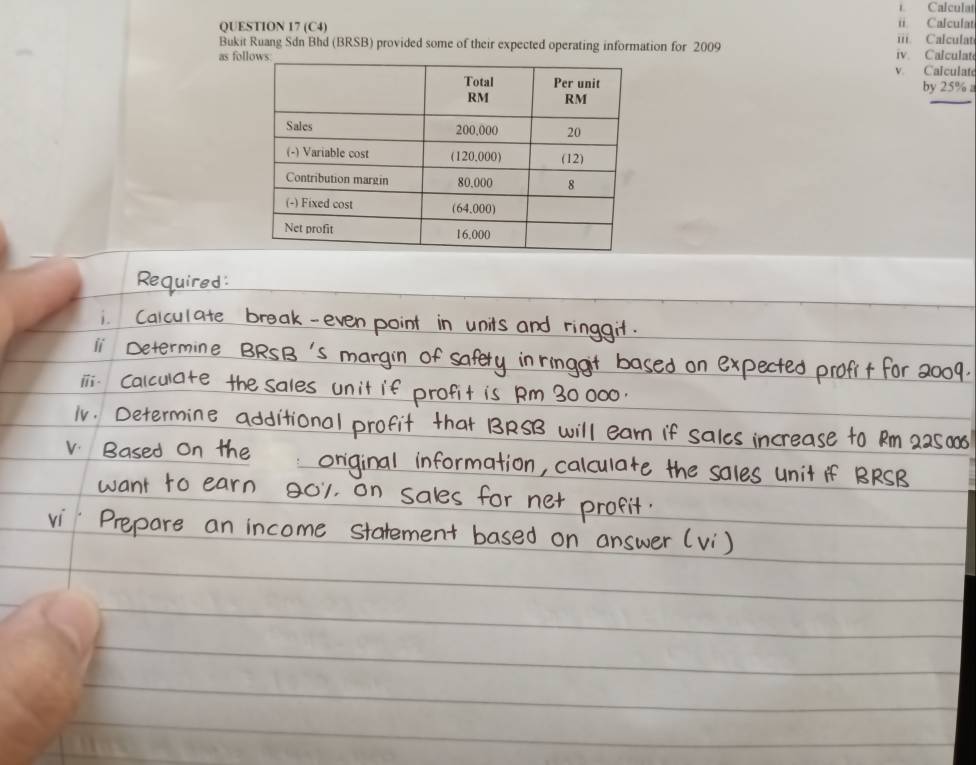 QUESTION 17 (C4)
Bukit Ruang Sdn Bhd (BRSB) provided some of their expected operating information for 2009
as follows:
Total RM Per unit RM
Sales 200,000 20
(-) Variable cost (120,000) (12)
Contribution margin 80,000 8
(-) Fixed cost (64,000)
Net profit 16,000
i.
ii. 
iii. 
iv. 
v. 
by 25%
Required:
i. Calculate break-even point in units and ringgit.
ii Determine BRSB's margin of safety in ringgit based on expected profit for 2009.
iii. Calculate the sales unit if profit is Rm 30 000.
iv. Determine additional profit that BRSB will earn if sales increase to Rm 225 000
v. Based on the original information, calculate the sales unit if BRSB
want to earn 20% on sales for net profit.
vi. Prepare an income statement based on answer (vi)